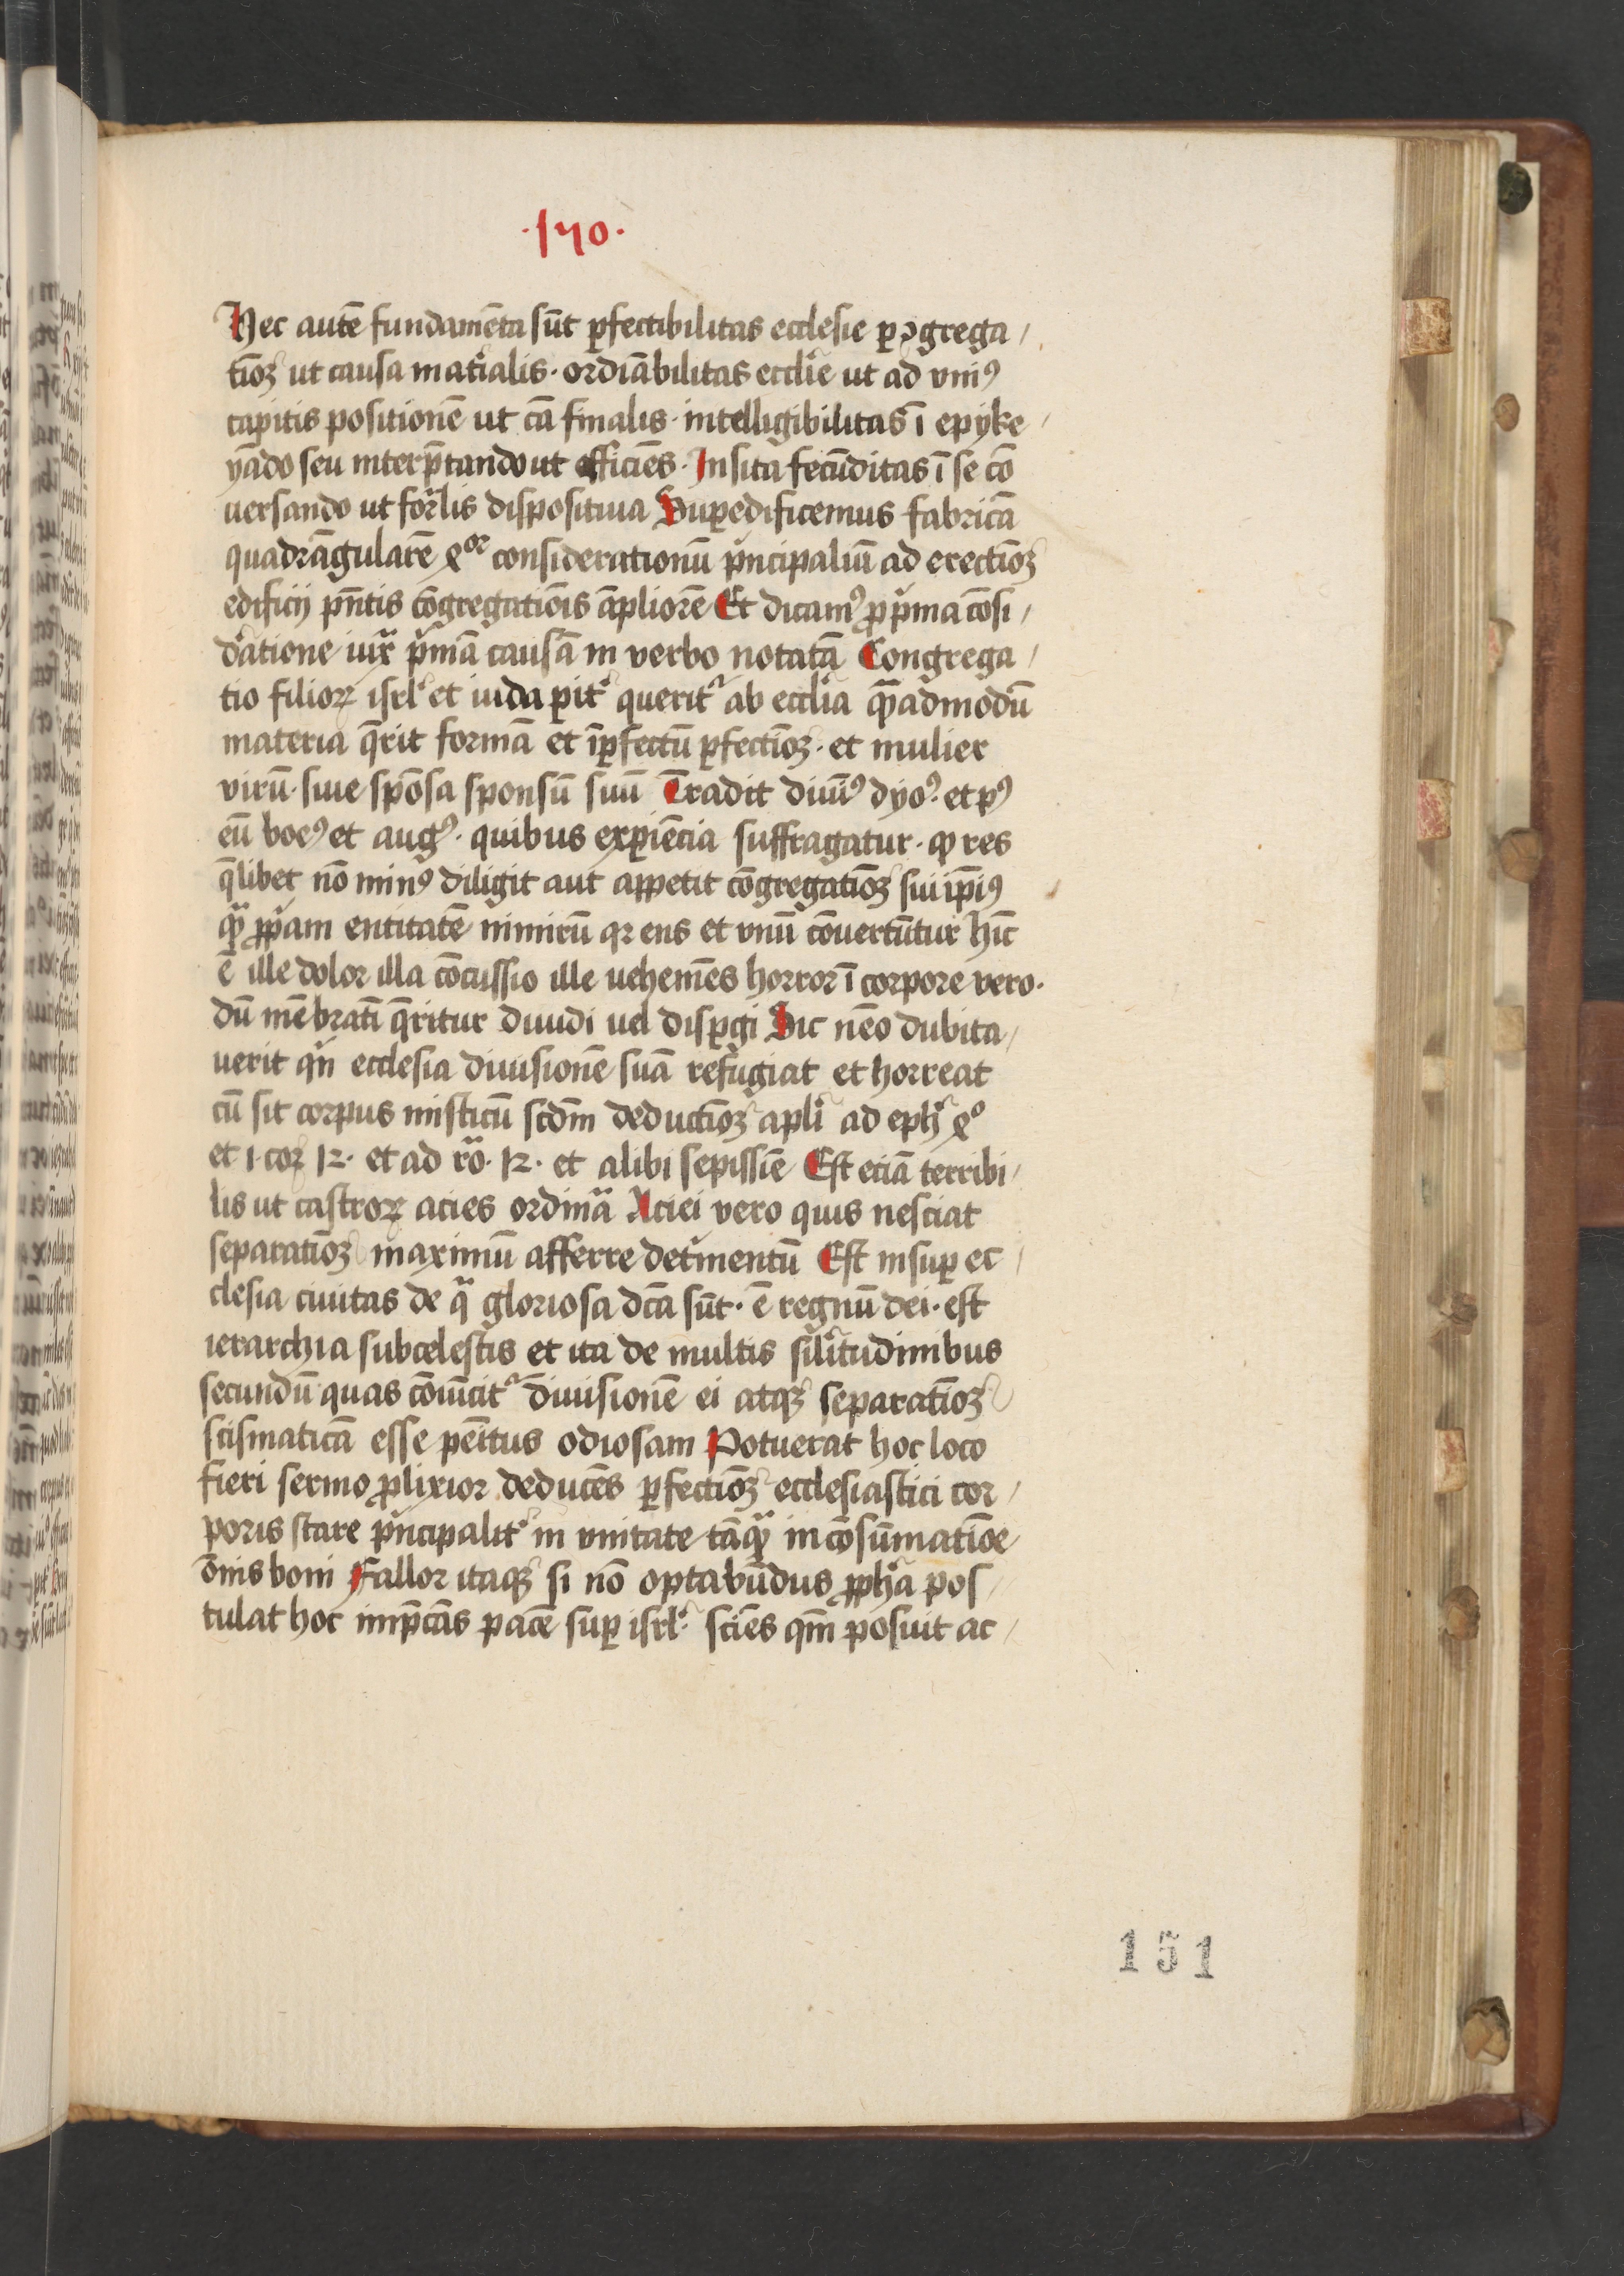 ·170·
Hec autē fundamēta sūt ꝑfectibilitas ecclesie ꝑ ꝯgrega/
tiōꝫ ut causa mat͛ialis · ordīabilitas ecclīe ut ad vniꝰ
capitis positionē ut cā finalis · intelligibilitas ī epyke/
yādo seu interp̄tando ut efficiēs · Insita fecūditas ī se cō
uersando ut for͛lis dispositiua Suꝑedificemus fabricā
quadrāgularē 4or consideratonū pͥncipaliū ad erectiōꝫ
edificij pn̄tis cōgregatiōis āpliorē Et dicamꝰ ꝓ pͥma cōsi/
d͛atione iuxͣ pͥmā causā in verbo notatā Congrega/
tio filioꝝ isrl͛ et iuda ꝑit͛ querit᷑ ab ecclīa qͣadmodū
materia q̄rit formā et īꝑfectū ꝑfectiōꝫ · et mulier
virū · siue spōsa sponsū suū Tradit diuīꝰ dyoꝰ · et pꝰ
eū boeꝰ et augꝰ · quibus exꝑiēcia suffragatur · ꝙ res
q̄libet nō minꝰ diligit aut appetit cōgregatiōꝫ sui ip̄iꝰ
qͣꝫ ꝓpͥam entitatē nimirū qꝛ ens et vnū cōuertūtur hīc
ē ille dolor illa cōcussio ille uehemēs horror ī corpore vero ·
dū mēbratī q̄ritur diuidi uel disꝑgi Sic nēo dubita/
uerit qͥn ecclesia diuisionē suā refugiat et horreat
cū sit corpus misticū scdm̄ deductiōꝫ apl͛i ad eph͛ 4o
et 1 · coꝝ 12 · et ad ro͛ · 12 · et alibi sepissīe Est eciā terribi/
lis ut castroꝝ acies ordinͣa Aciei vero quis nesciat
separatiōꝫ maximū afferre det͛mentū Est insuꝑ ec/
clesia ciuitas de qͣ gloriosa dc̄a sūt · ē regnū dei · est
ierarchia subcelestis et ita de multis sil͛itudinibus
secundū quas cōuīcit᷑ diuisionē ei atqꝫ separatiōꝫ
scismaticā esse penītus odiosam Potuerat hoc loco
fieri sermo ꝓlixior deducēs ꝑfectiōꝫ ecclesiastici cor/
poris stare pͥncipalit͛ in vnitate tāqͣꝫ in cōsūmatiōe
ōnis boni Fallor itaqꝫ si nō optabūdus ꝓph͛a pos/
tulat hoc imp̄cās pacē suꝑ isrl͛ · sciēs qm̄ posuit ac/
151